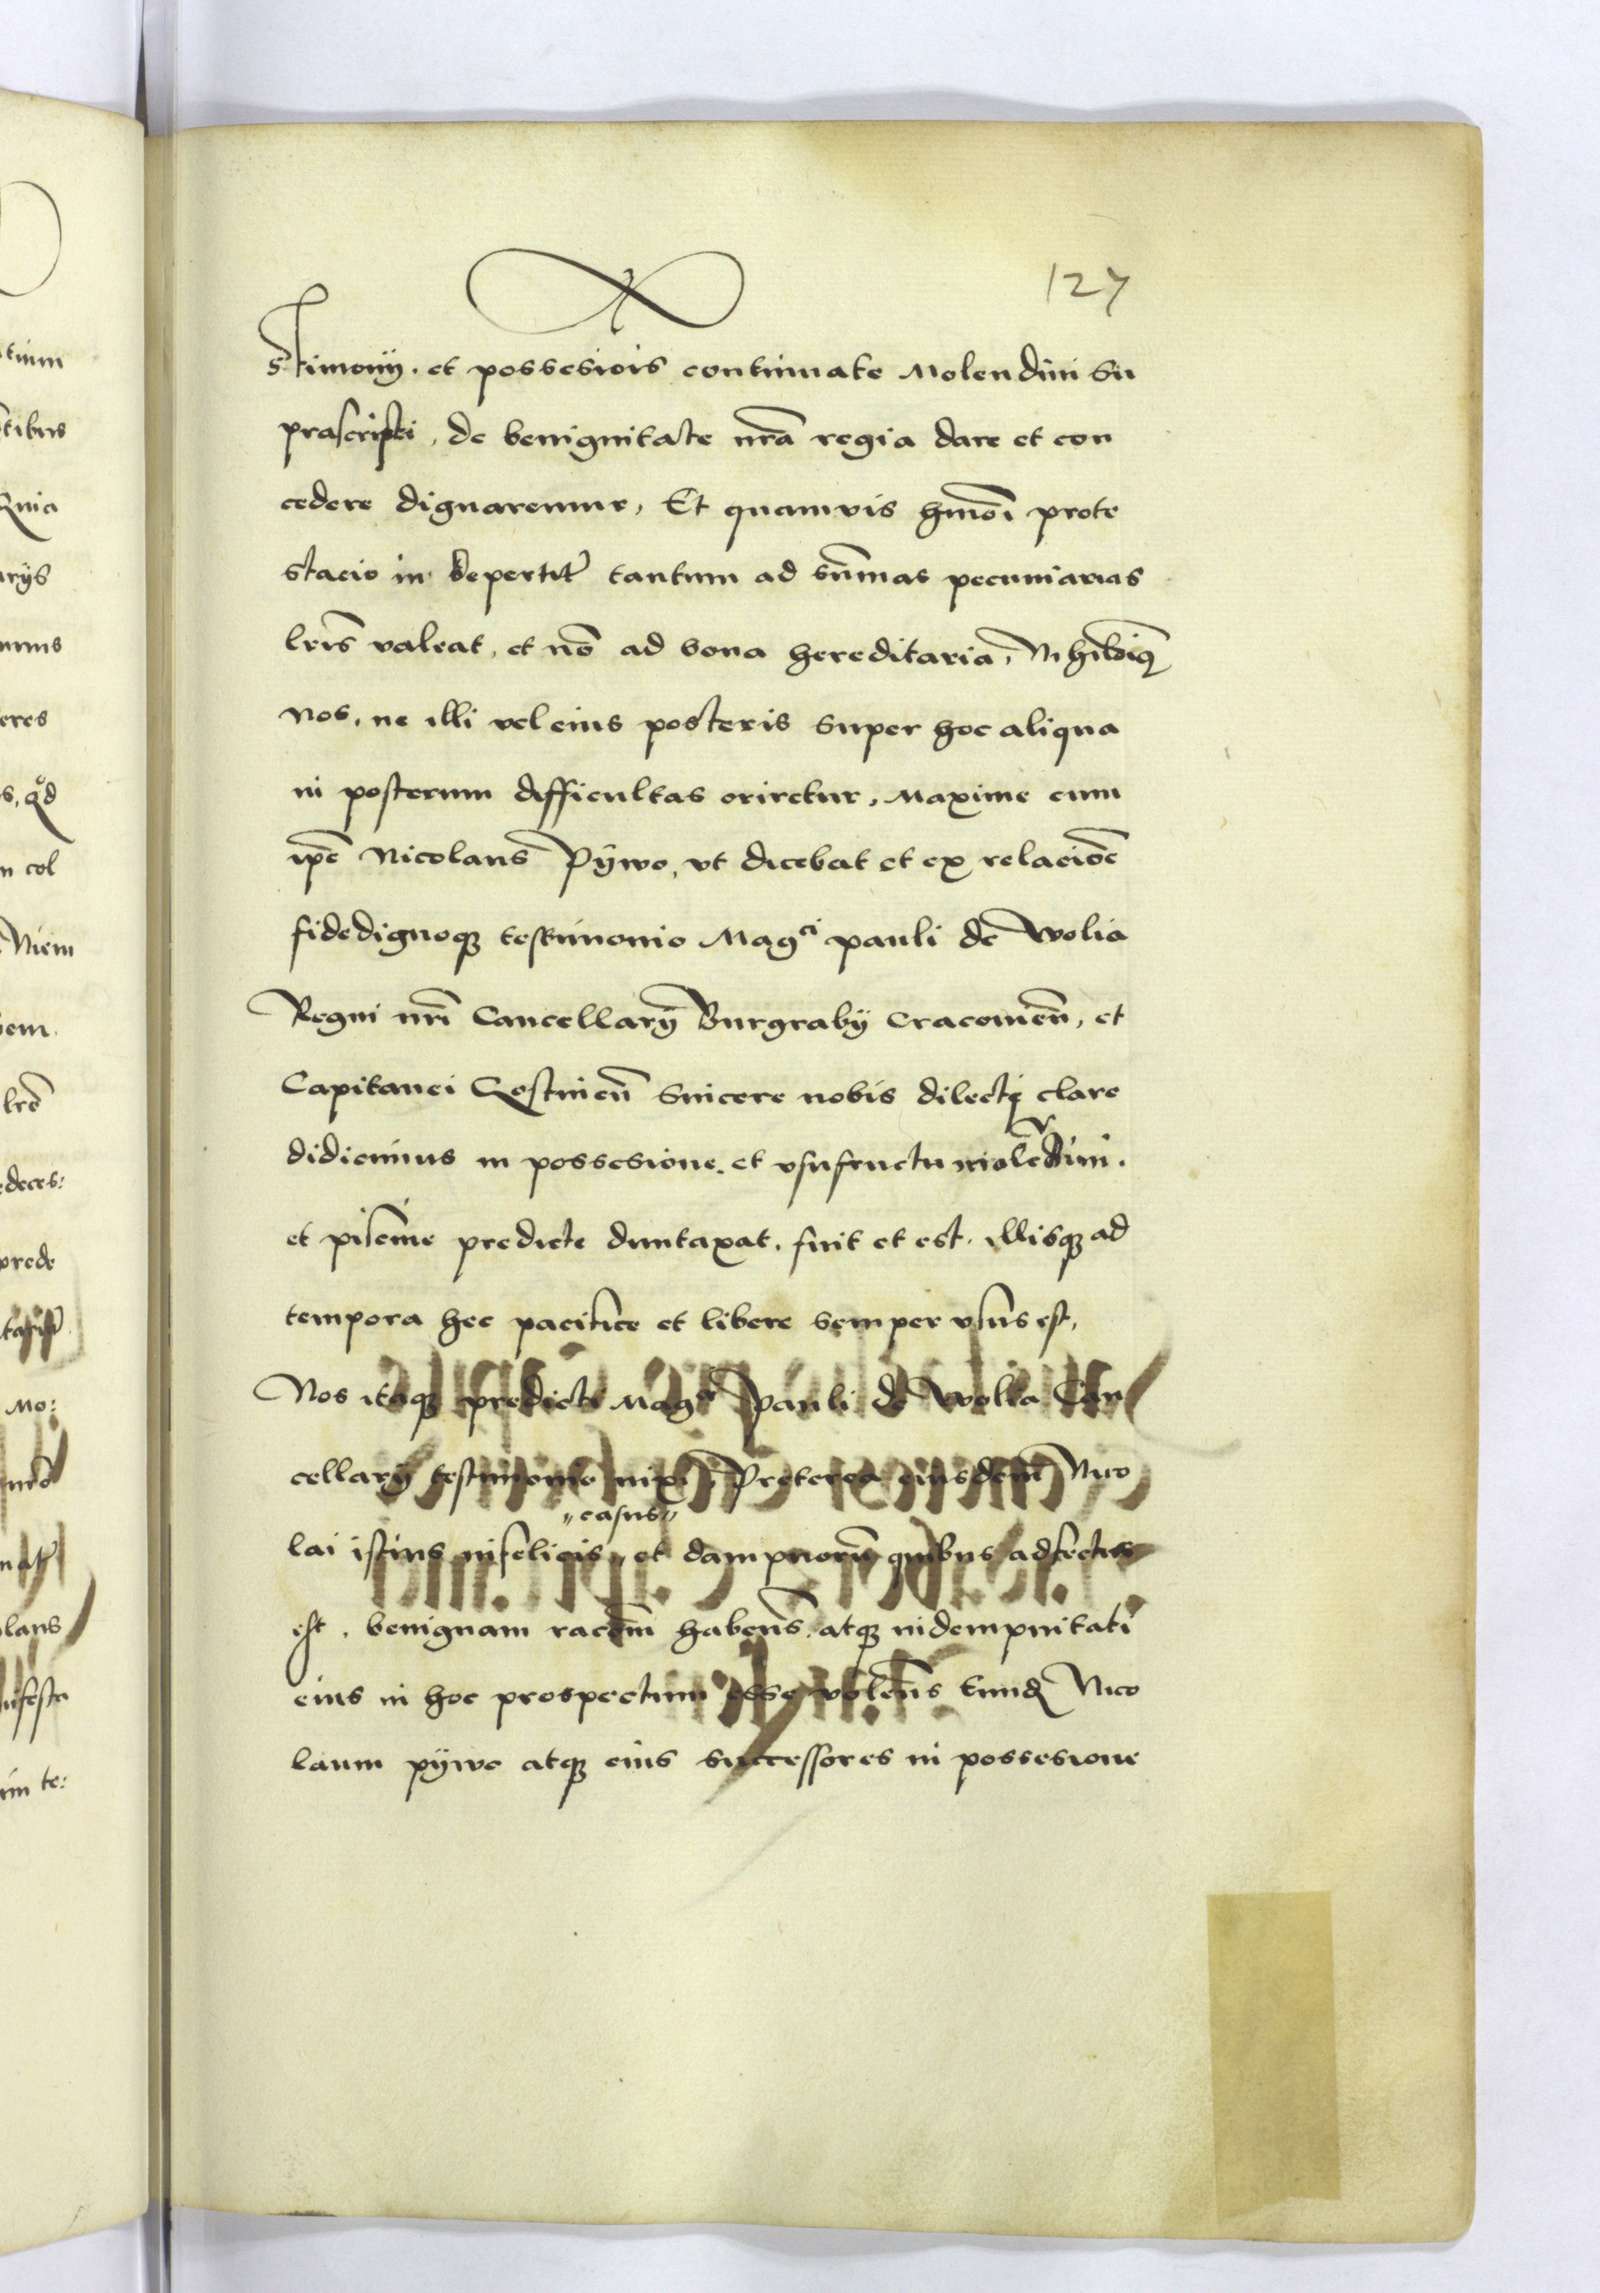 127
stimonij . et possesiois continuate Molendini Su
prascripti , de benignitate nrã regia dare et con
cedere dignaremur , Et quamvis hmõi prote
stacio in depertiť tantum ad sũmas pecuniarias
lrĩs valeat , et nõ ad bona hereditaria ,
nos , ne illi vel eius posteris super hoc aliqua
in posterum difficultas oriretur , Maxime cum
ipẽ Nicolaus Pÿwo , vt dicebat et ex relaciõe
fidedignoqȝ testimonio Magci pauli de Wolia
Regni nrĩ Cancellarÿ Burgrabÿ Cracouieñ , et
Capitanei Gostinieñ Sincere nobis dilecti clare
didicimus in possesione . et vsufructu molẽdini .
et piscine predicte duntaxat . fuit et est . illisqȝ ad
tempora hec pacifice et libere semper vsus est ,
Nos itaqȝ predicti Magci Pauli de Wolia Can
cellarÿ testimonio nixi , Preterea eiusdem Nico
„casus„
lai istius infelicis „ et dampnorũ quibus adfectus
est , benignam racõm habeñs . atqȝ indempnitati
eius in hoc prospectum esse voleñs Eund Nico
laum pÿwo atqȝ eius successores in possesione
tium
tibus
Quia
arÿs
eres
s , qd
n col
Niem
lrẽ
edeces :
prede
Mo :
nrõ
laus
im te :